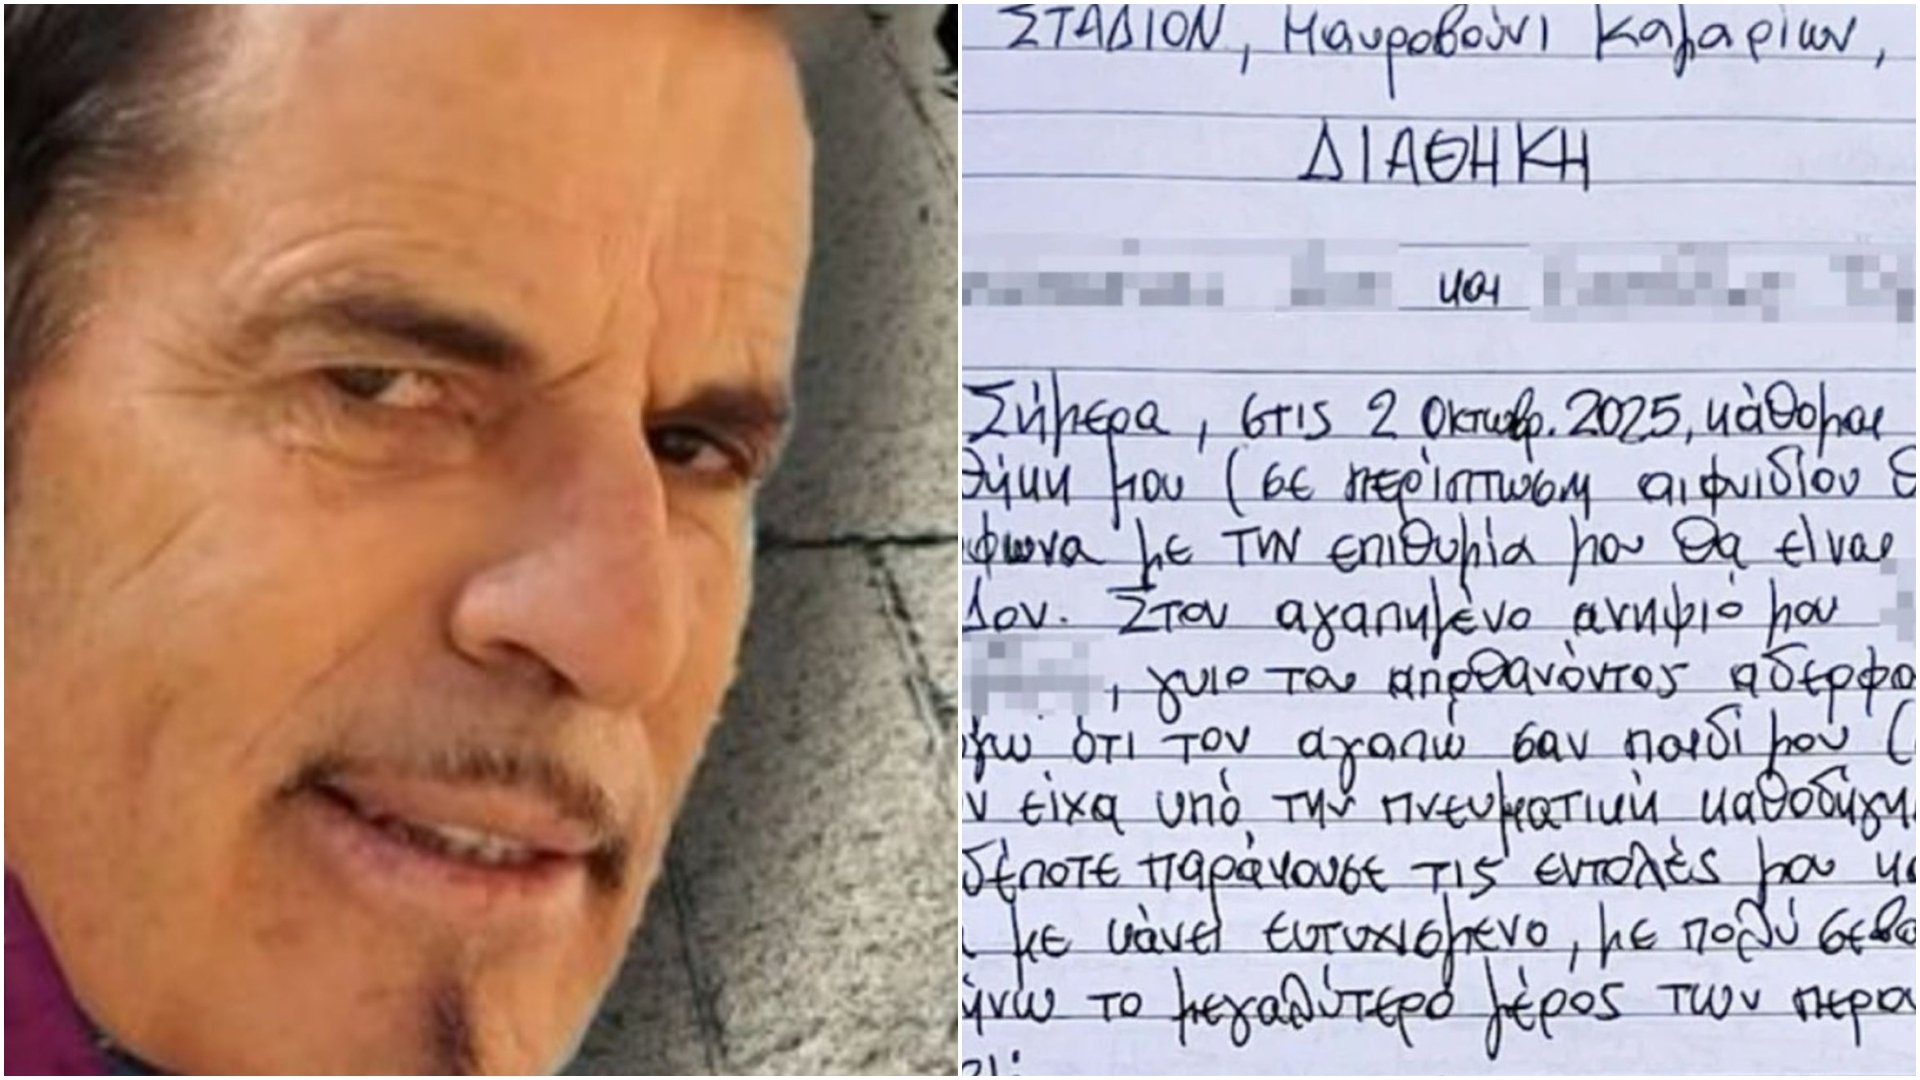 ΣΤΑΔΙΟΝ, Μαυροβούνι Καμαρίων,
ΔΙΑΘΗΚΗ
και
Σήμερα, στις 2 Οκτωβρ. 2025, κάθομαι
θήκη μου (σε περίπτωση αιφνιδίου θ
φωνα με την επιθυμία μου θα είναι
δον. Στον αγαπημένο ανηψιό μου
, γυιο του αποθανόντος αδερφο
γω ότι τον αγαπώ σαν παιδί μου (
ν είχα υπό την πνευματική καθοδήγη
δέποτε παράκουσε τις εντολές μου κα
με κάνει ευτυχισμένο, με πολύ σεβα
ήνω το μεγαλύτερο μέρος των περιο